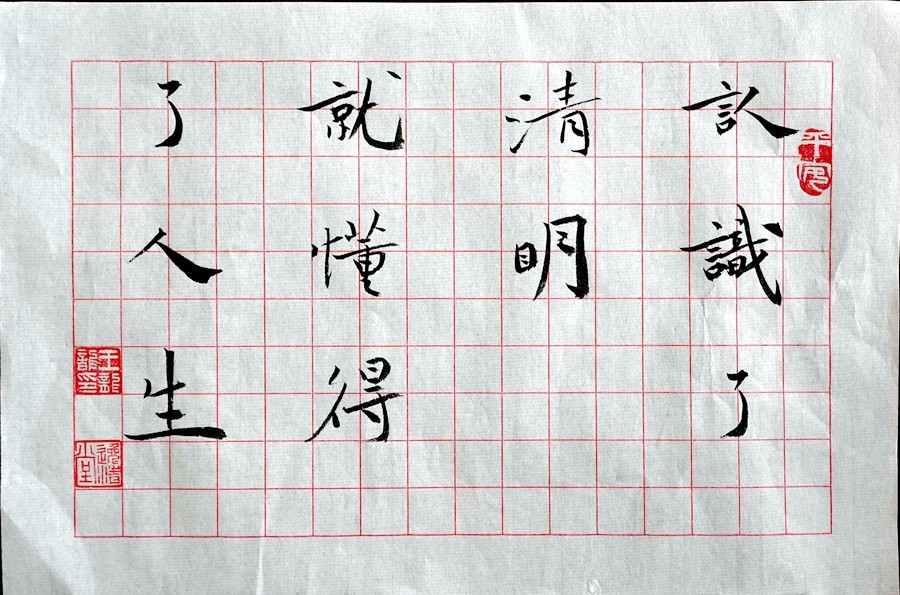 认識了
清明
就懂得
了人生
平安